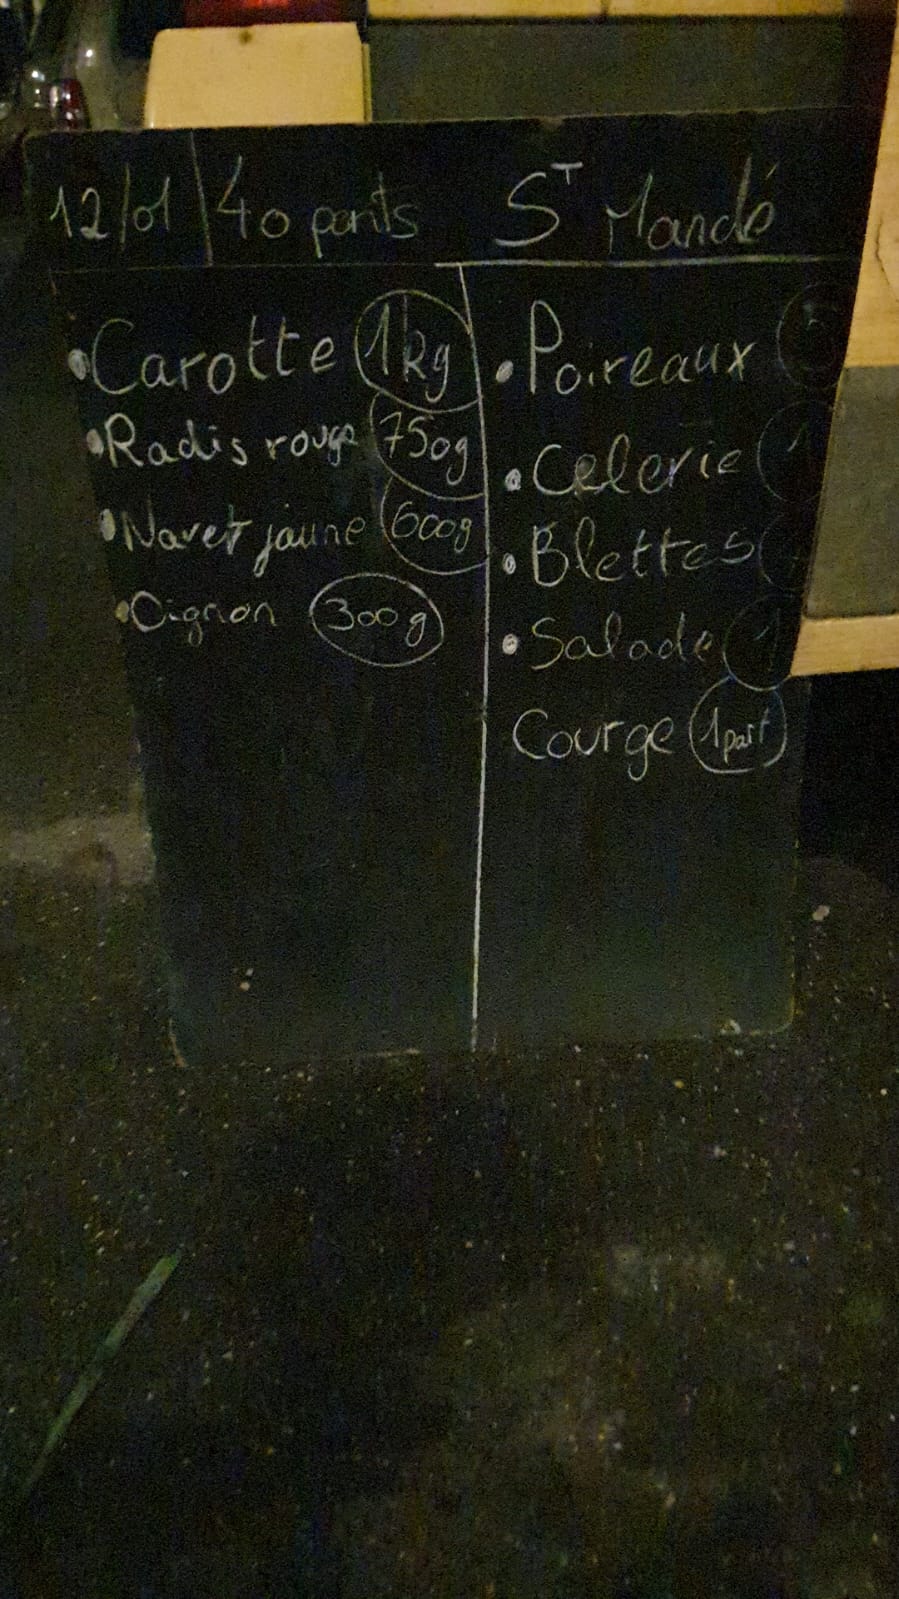 12/01 40 parts ST Mandé
Carotte 1kg
Radis rouge 750g
Navet jaune 600g
Oignon 300g
Poireaux
Celerie 1
Blettes
Salade 1
Courge 1 part